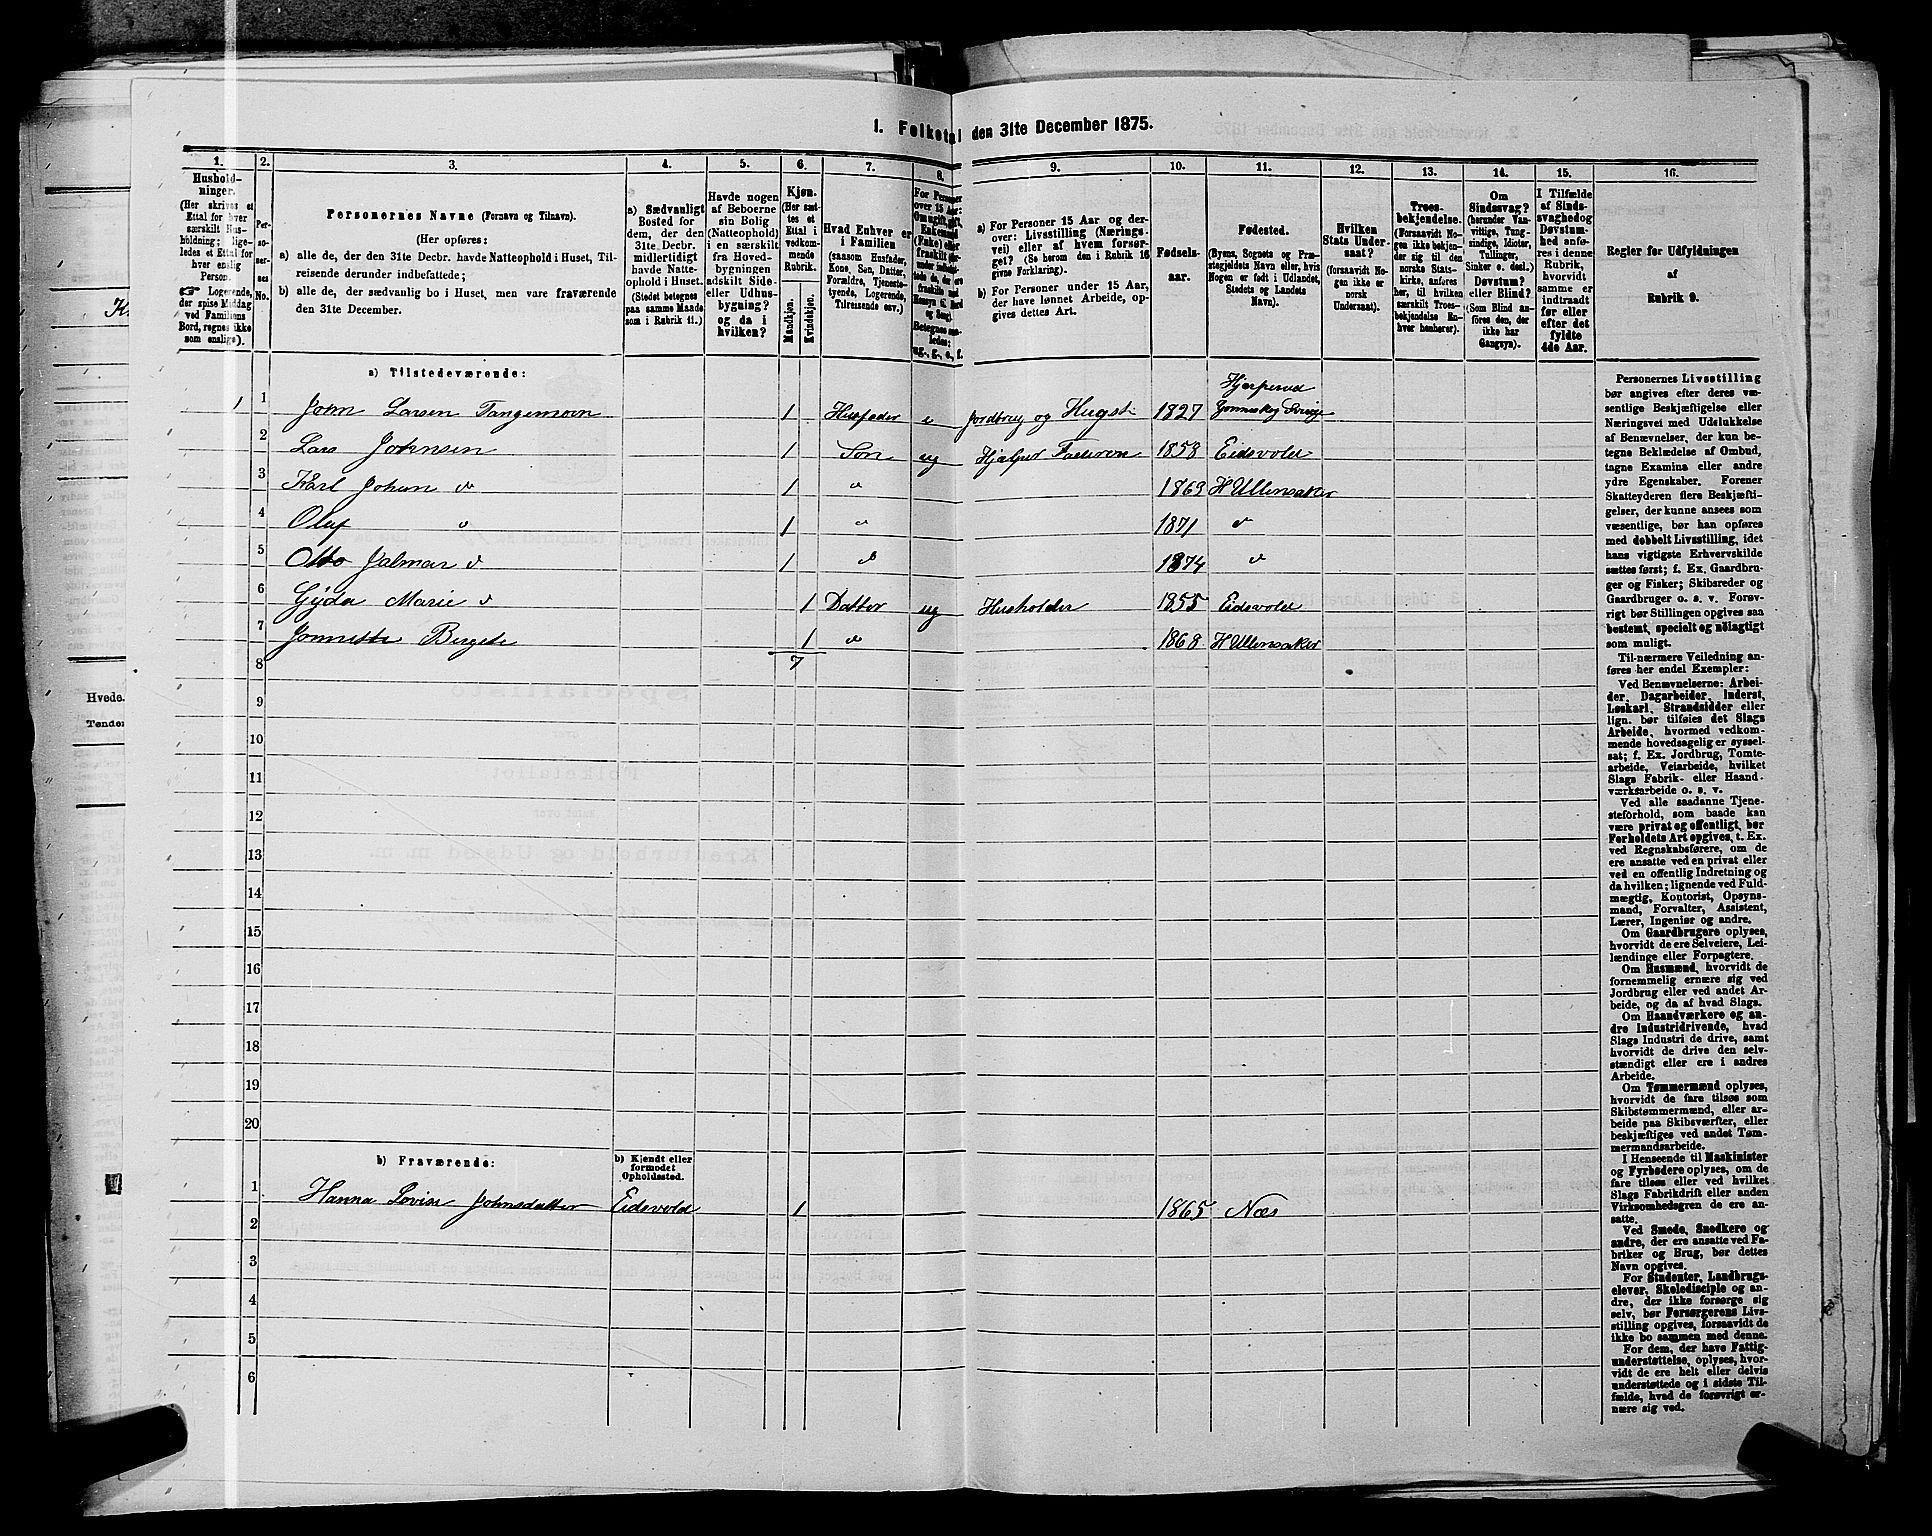 1. Folketal den 31te December 1875.
1.
Hushold-
ninger.
(Her skrives et
Ettal for hver
særskilt Hus-
holdning; lige-
ledes et Ettal
for hver enslig
Person.
☞ Logerende,
der spise Middag
ved Familiens
Bord, regnes ikke
som enslige).
2.
Per-
soner-
nes
No.
3.
Personernes Navne (Fornavn og Tilnavn).
(Her opføres:
a) alle de, der den 31te Decbr. havde Natteophold i Huset, Til-
reisende derunder indbefattede;
b) alle de, der sædvanlig bo i Huset, men vare fraværende
den 31te December.
4.
a) Sædvanligt
Bosted for
dem, der den
31te Decbr.
midlertidigt
havde Natte-
ophold i Huset.
(Stedet betegnes
paa samme Maade
som i Rubrik 11.)
5.
Havde nogen
af Beboerne
sin Bolig
(Natteophold)
i en særskilt
fra Hoved-
bygningen
adskilt Side-
eller Udhus-
bygning?
og da i
hvilken?
6.
Kjøn.
(Her sæt-
tes et
Ettal i
vedkom-
mende
Rubrik.
Mandkjøn.
Kvindekjøn.
7.
Hvad Enhver er
i Familien
(saasom Husfader,
Kone, Søn, Datter,
Forældre, Tjeneste-
tyende, Logerende,
Tilreisende osv.)
8.
For Personer
over 15 Aar:
Om ugift, gift,
Enkemand
(Enke) eller
fraskilt
Betegnes saa-
ledes:
ug., g., e., f.
9.
a) For Personer 15 Aar og der-
over: Livsstilling (Nærings-
vei) eller af hvem forsør-
get? (Se herom den i Rubrik 16
givne Forklaring).
b) For Personer under 15 Aar,
der have lønnet Arbeide, op-
gives dettes Art.
10.
Fødsels-
aar.
11.
Fødested.
(Byens, Sognets og Præste-
gjeldets Navn eller, hvis
Nogen er født i Udlandet,
Stedets og Landets
Navn).
12.
Hvilken
Stats Under-
saat?
(forsaavidt No-
gen ikke er
norsk
Undersaat).
13.
Troes-
bekjendelse.
(Forsaavidt No-
gen ikke bekjen-
der sig til den
norske Stats-
kirke, anføres
her, til hvilken
særskilt Troes-
bekjendelse En-
hver henhører).
14.
Om
Sindssvag?
(herunder Van-
vittige, Tung-
sindige, Idioter,
Tullinger,
Sinker o. desl.)
Døvstum?
eller Blind?
(Som Blind an-
føres den, der
ikke har
Gangsyn).
15.
I Tilfælde
af Sinds-
svaghed og
Døvstum-
hed anfø-
res i denne
Rubrik,
hvorvidt
samme er
indtraadt
før eller
efter det
fyldte
4de Aar.
16.
Regler for Udfyldningen
af
Rubrik 9.
a) Tilstedeværende:
1 1 John Larsen Tangemoen 1 Husfader e Jordbrug og Hugst 1827 Sverige
2 Lars Johnsen 1 Søn ug Hjælper Faderen 1858 Eidsvold
3 Karl Johan do 1 do 1869 H Ullensaker
4 Oluf do 1 do 1871 do
5 Otto Jalmar do 1 do 1874 do
6 Gyda Marie do 1 Datter ug Husholder 1855 Eidsvold
7 Jonnette Birgete 1 do 1868 H Ullensaker
8 7
9
10
11
12
13
14
15
16
17
18
19
20
b) Fraværende:
b) Kjendt eller
formodet
Opholdssted.
1 Hanna Lovise Johnsdatter Eidsvold 1 1865 Næs
2
3
4
5
6
Personernes Livsstilling
bør angives efter deres væ-
sentlige Beskjæftigelse eller
Næringsvei med Udelukkelse
af Benævnelser, der kun be-
tegne Beklædelse af Ombud,
tagne Examina eller andre
ydre Egenskaber. Forener
Skatteyderen flere Beskjæfti-
gelser, der kunne ansees som
væsentlige, bør han opføres
med dobbelt Livsstilling, idet
hans vigtigste Erhvervskilde
sættes først; f. Ex. Gaardbru-
ger og Fisker; Skibsreder og
Gaardbruger o. s. v. Forøv-
rigt bør Stillingen opgives saa
bestemt, specielt og nøiagtigt
som muligt.
Til nærmere Veiledning an-
føres her endel Exempler:
Ved Benævnelserne: Arbei-
der, Dagarbeider, Inderst,
Løskarl, Strandsidder eller
lign. bør tilføies det Slags
Arbeide, hvormed vedkom-
mende hovedsagelig er syssel-
sat; f. Ex. Jordbrug, Tomte-
arbeide, Veiarbeide, hvilket
Slags Fabrik- eller Haand-
værksarbeide o. s. v.
Ved alle saadanne Tjene-
steforhold, som baade kan
være privat og offentligt, bør
Forholdets Art opgives, t. Ex.
ved Regnskabsførere, om de
ere ansatte ved en privat eller
ved en offentlig Indretning og
da hvilken; lignende ved Fuld-
mægtig, Kontorist, Opsyns-
mand, Forvalter, Assistent,
Lærer, Ingeniør og andre.
Om Gaardbrugere oplyses,
hvorvidt de ere Selveiere, Lei-
lændinge eller Forpagtere.
Om Husmænd, hvorvidt de
fornemmelig ernære sig ved
Jordbrug eller ved andet Ar-
beide, og da af hvad Slags.
Om Haandværkere og an-
dre Industridrivende, hvad
Slags Industri de drive, samt
hvorvidt de drive den selv-
stændigt eller ere i andres
Arbeide.
Om Tømmermænd oplyses,
hvorvidt de fare tilsøs som
Skibstømmermænd, eller ar-
beide paa Skibsværfter, eller
beskjæftiges ved andet Tøm-
mermandsarbeide.
I Henseende til Maskinister
og Fyrbødere oplyses, om de
fare tilsøs eller ved hvilket
Slags Fabrikdrift eller anden
Virksomhedsgren de ere an-
satte.
Ved Smede, Snedkere og
andre, der ere ansatte ved Fa-
briker og Brug, bør dettes
Navn opgives.
For Studenter, Landbrugs-
elever, Skoledisciple og an-
dre, der ikke forsørge sig
selv, bør Forsørgerens Livs-
stilling opgives, forsaavidt de
ikke bo sammen med denne.
For dem, der have Fattig-
understøttelse, oplyses, hvor-
vidt de ere helt eller delvis
understøttede og i sidste Til-
fælde, hvad de forøvrigt er-
nære sig ved.
Hvede.
Tønder